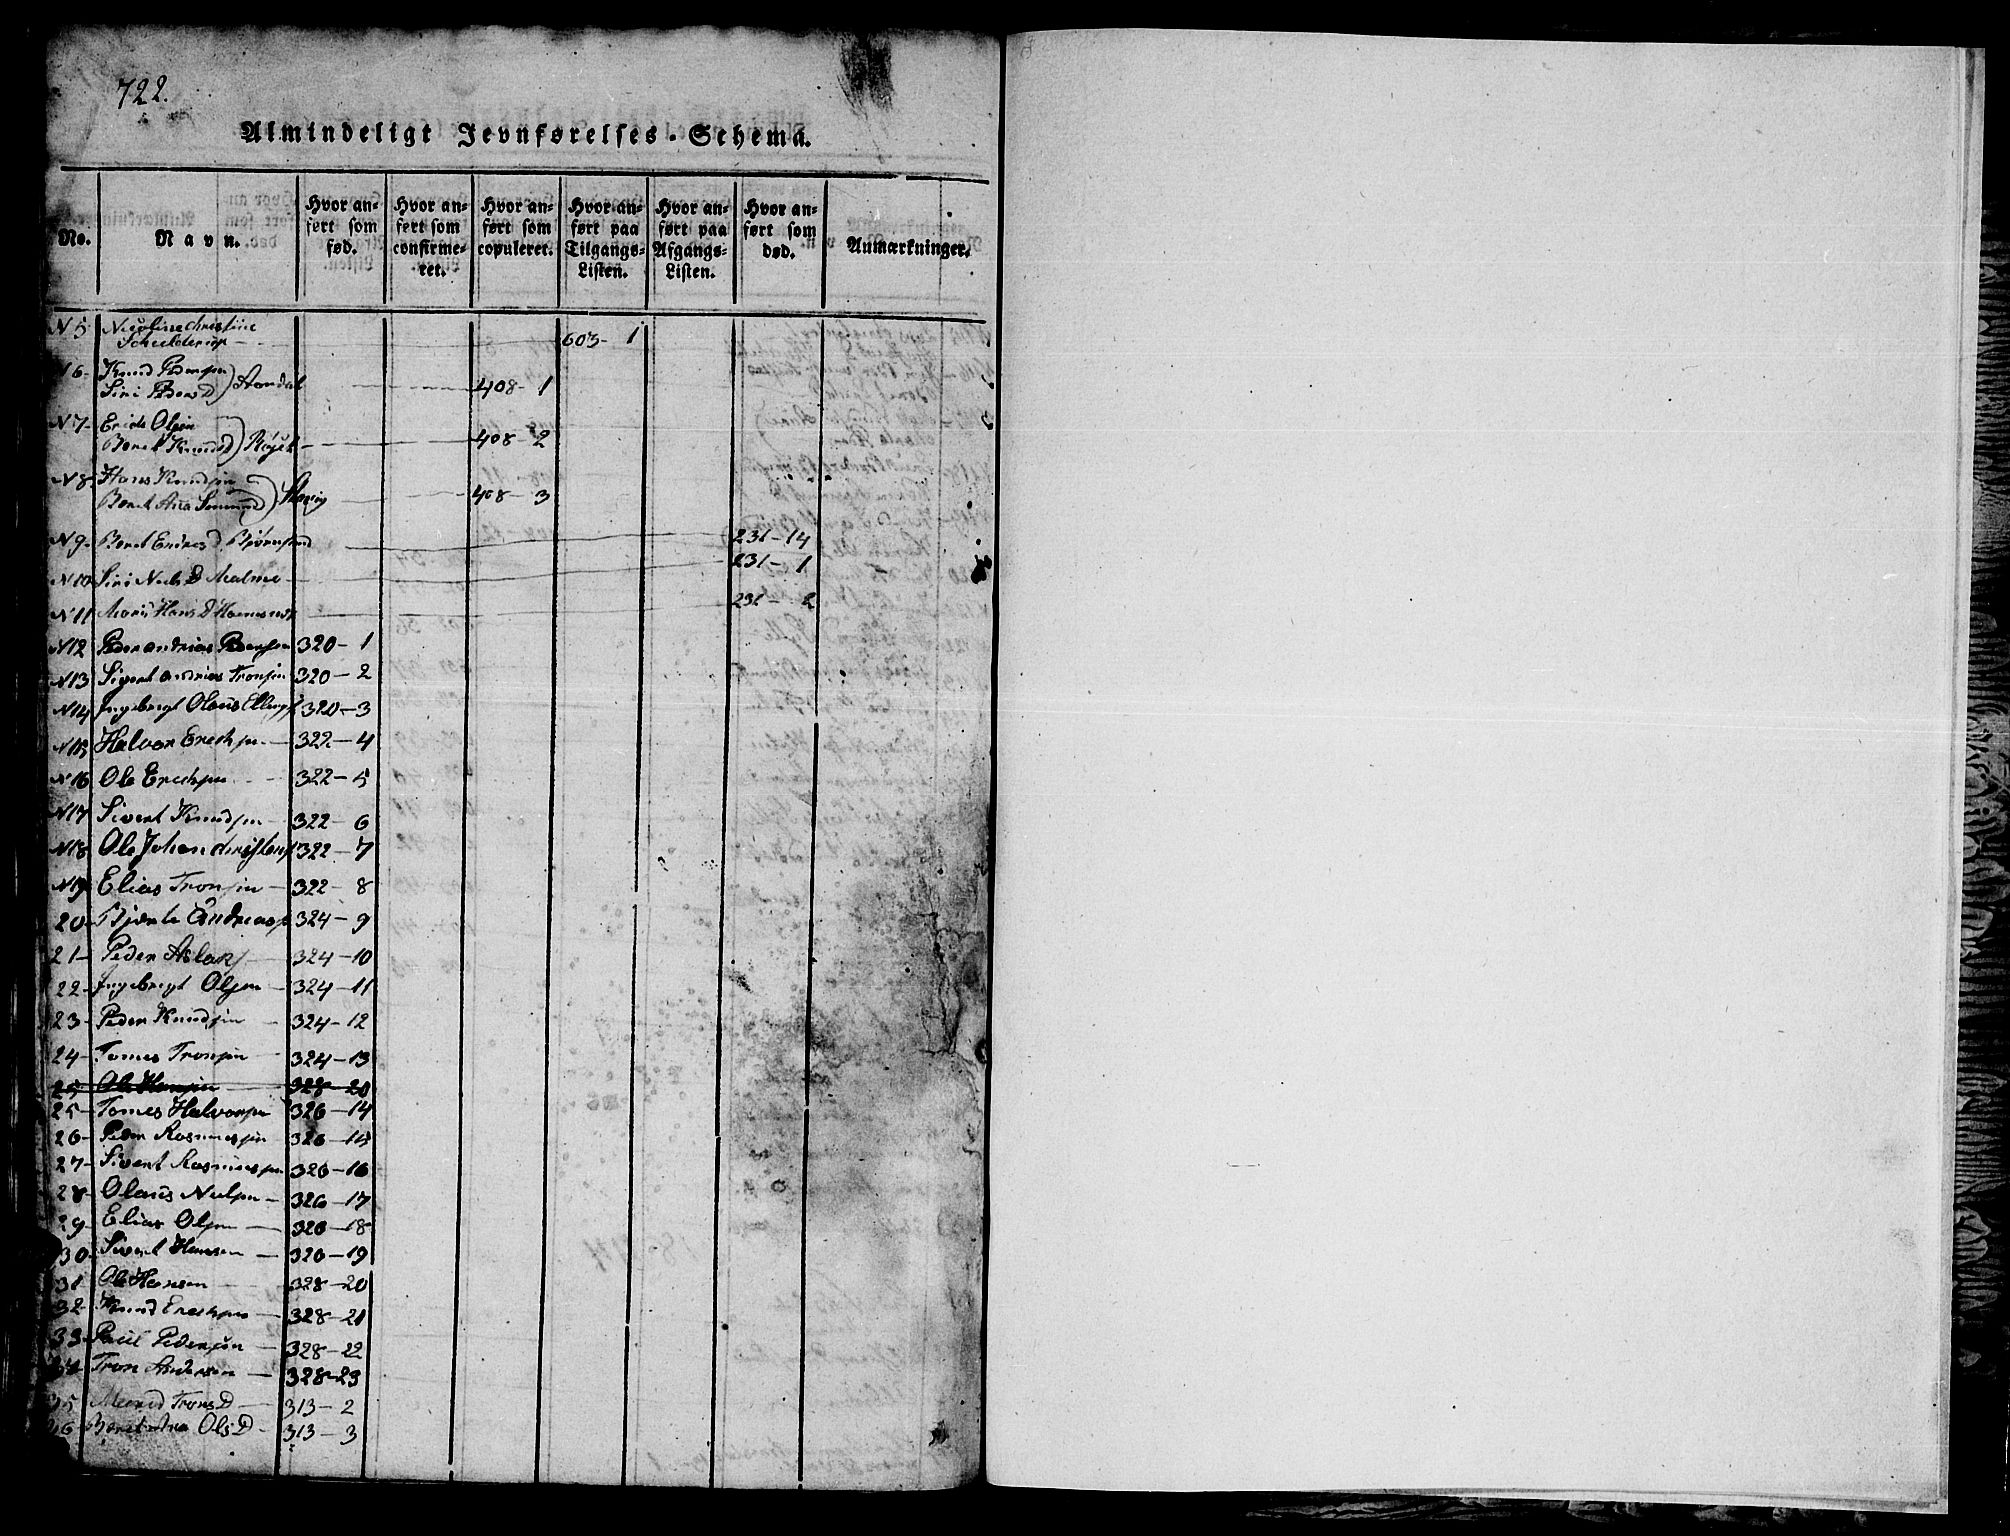 722.
Almindeligt Jevnførelses-Schema.
No. Navn. Hvor anført som fød. Hvor anført som confirmeret. Hvor anført som copuleret. Hvor anført paa Tilgangs-Listen. Hvor anført paa Afgangs-Listen. Hvor anført som død. Anmærkninger.
N 5 Nicoline Christine
603- 1
N 6- Knud Pedersen
Siri Peders D 408- 1
N 7- Erick Olsen
Beret Knuds D 408- 2
N 8- Hans Knudsen
Beret Ana 408- 3
N 9- Beret Endres D Bjørnsund 231-14
N 10 Siri Niels D Malme 231- 1
N 11 Marit Hans D 231- 2
N 12 Peder Andrias Pedersen 320- 1
N 13 Sivert Andrias Tronsen 320- 2
N 14 Ingebrigt Olaus 320-3
N 15 Halvor Erichsen 322-4
N 16 Ole Erichsen 322-5
N 17 Sivert Knudsen 322- 6
N 18 Ole Johan 322- 7
N 19 Elias Tronsen 322- 8
20- Andreas 324- 9
21- Peder Aslaks 324-10
22- Ingebrigt Olsen 324-11
23- Peder Knudsen 324-12
24- Tomes Tronsen 324-13
25 Ole Hansen 328-20
25- Tomes Halvorsen 326-14
26- Peder Rasmussen 326-15
27- Sivert Rasmussen 326-16
28- Olaus Nielsen 326-17
29- Elias Olsen 326-18
30- Sivert Hansen 326-19
31 Ole Hansen 328-20
32- Knud Erichsen 328-21
33- Paul Pedersen 328-22
34- Tron Andersen 328-23
35 Trons D 313- 2
36- Beret Ana Ols D 313- 3